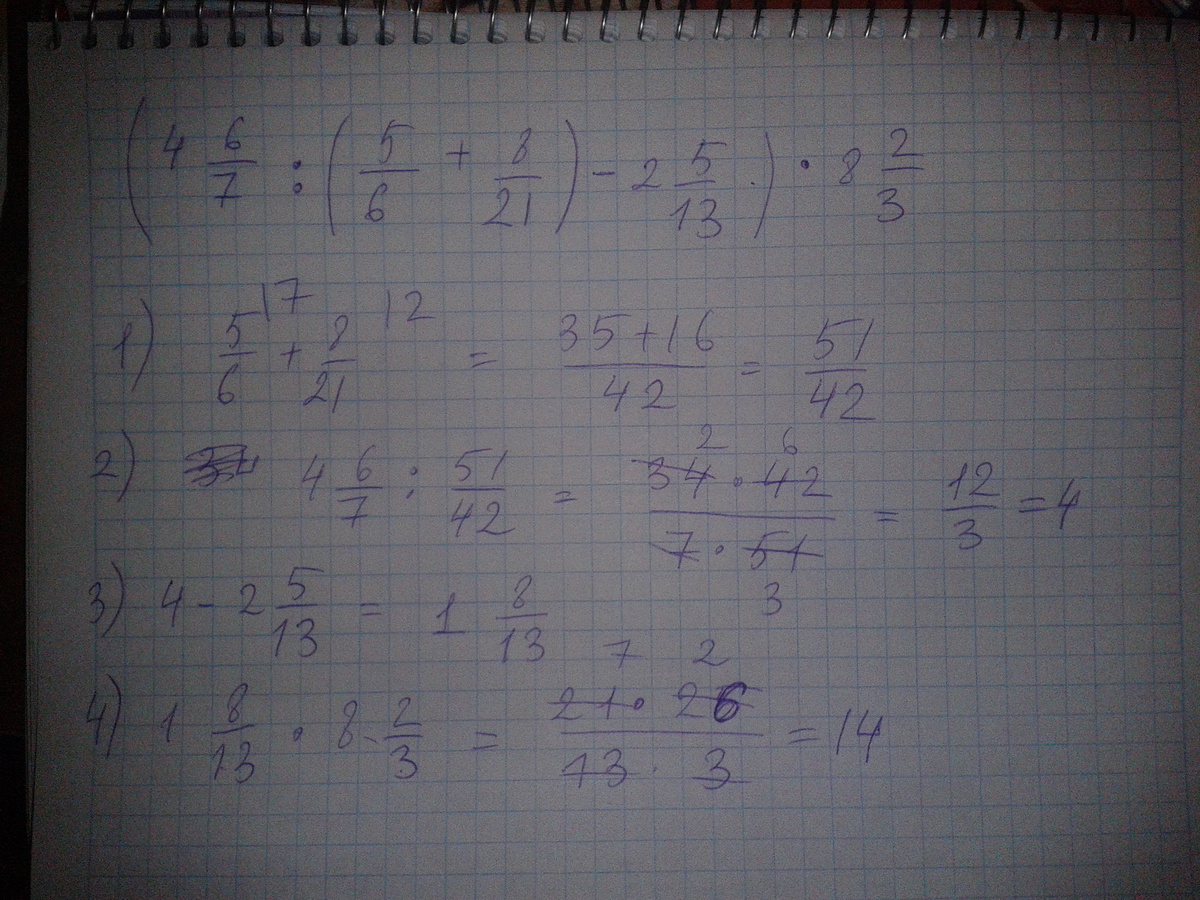 (4 6/7 : (5/6 + 8/21) - 2 5/13 .) · 8 2/3
1) 5/6 |7 + 8/21 |2 = 35+16/42 = 51/42
2) 4 6/7 : 51/42 = 34 2 · 42 6 / 7 · 51 3 = 12/3 = 4
3) 4 - 2 5/13 = 1 8/13
4) 1 8/13 · 8 2/3 = 21 7 · 26 2 / 13 · 3 = 14